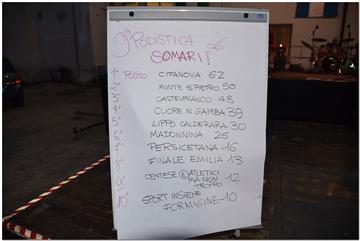 9ª PODISTICA
SOMARI!
1° POSTO CITANOVA 62
2° MONTE S.PIETRO 50
3° CASTELFRANCO 48
4° CUORE IN GAMBA 39
5° LIPPO CALDERARA 30
6° MADONNINA 26
7° PERSICETANA 16
8° FINALE EMILIA 13
9° CENTESE E ATLETICI
MA NON
TROPPO 12
10° SPORT INSIEME
FORMIGINE - 10